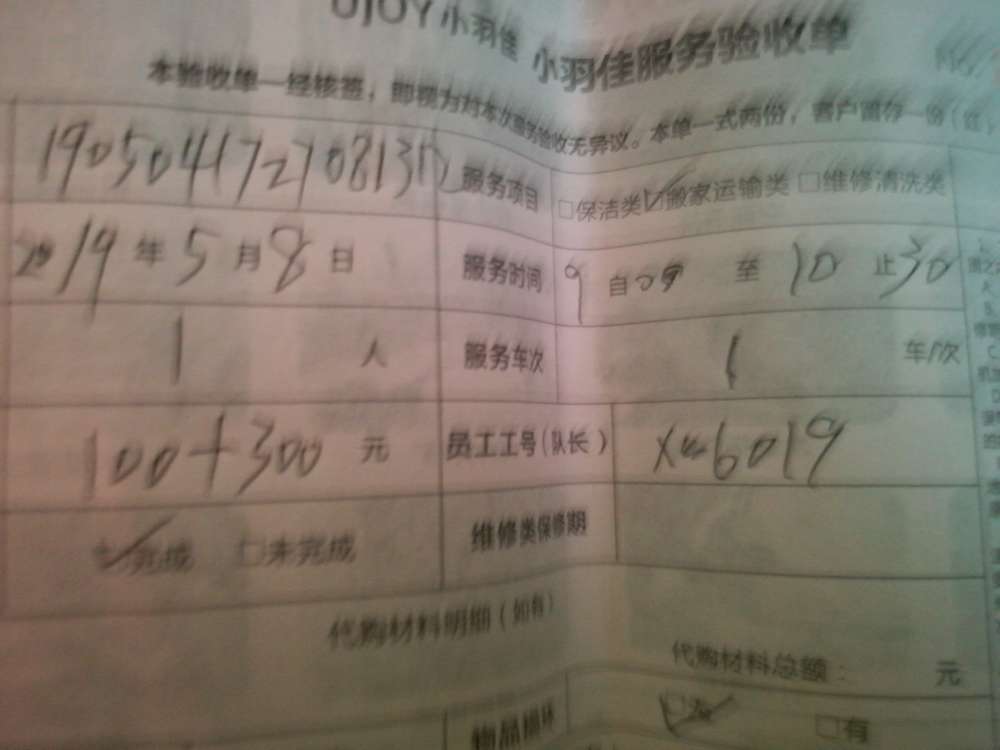 UJOY小羽佳 小羽佳服务验收单
本验收单一经核签，即视为对本次服务验收无异议。本单一式两份，客户留存一份（红
服务项目 □保洁类 ☑搬家运输类 □维修清洗类
2019年5月8日 服务时间 9自 至10止30
1人 服务车次 1 车/次
100+300元 员工工号（队长） xm6019
☑完成 □未完成 维修类保修期
代购材料明细（如有）
代购材料总额： 元
物品损坏 ☑无 □有